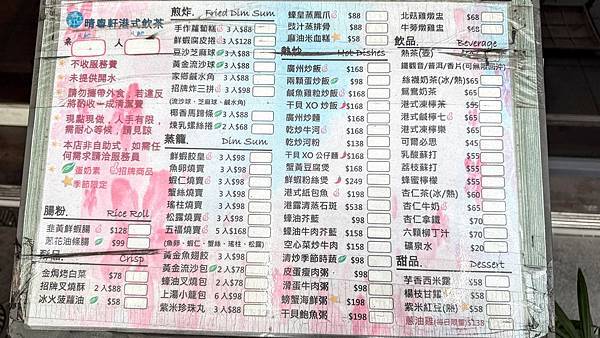 晴粵軒港式飲茶
桌 人
不收服務費
未提供開水
請勿攜帶外食，若違反
將酌收一成清潔費
現點現做，人手有限，
需耐心等候，請見諒
本店非自助式，如需任
何需求請洽服務員
蛋奶素 招牌商品
季節限定
腸粉. Rice Roll
韭黃鮮蝦腸 $128
蔥花油條腸 $99
Crisp
金偶烤白菜 $78
招牌叉燒酥 2入$68
冰火菠蘿油 $58
煎炸. Fried Dim Sum
手作蘿蔔糕 3入$88
鮮蝦腐皮捲 3入$98
豆沙芝麻球 3入$88
黃金流沙球 3入$88
家鄉鹹水角 3入$88
招牌炸三拼 3入$88
(流沙球、芝麻球、鹹水角)
椰香馬蹄條 3入$88
煉乳螺絲捲 2入$68
蒸籠. Dim Sum
鮮蝦餃皇 3入$98
魚卵燒賣 3入$98
蝦仁燒賣 3入$98
蟹絲燒賣 3入$98
瑤柱燒賣 3入$98
松露燒賣 3入$98
五福燒賣 5入$168
(魚卵、蝦仁、蟹絲、瑤柱、松露)
黃金魚翅餃 3入$98
黃金流沙包 2入$78
蠔油叉燒包 2入$78
上湯小籠包 6入$98
紫米珍珠丸 3入$88
蠔皇蒸鳳爪 $88
豉汁蒸排骨 $88
麻油米血糕 $58
熱炒. Hot Dishes
廣州炒飯 $128
兩顆蛋炒飯 $168
鹹魚雞粒炒飯 $168
干貝 XO 炒飯 $168
廣州炒麵 $168
乾炒牛河 $168
乾炒河粉 $138
干貝 XO 公仔麵 $168
蟹黃豆腐煲 $168
鮮蝦粉絲煲 $249
港式紙包魚 $198
港露清蒸石斑
蠔油芥藍 $128
蠔油牛肉芥藍 $158
空心菜炒牛肉 $158
清炒季節時蔬 $128
皮蛋瘦肉粥 $128
滑蛋牛肉粥 $128
螃蟹海鮮粥 $198
干貝鮑魚粥 $198
北菇雞燉盅 $68
牛蒡雞燉盅 $68
飲品. Beverage
熱茶(壺)
鐵觀音/普洱/香片(可無限回沖)
絲襪奶茶(冰/熱) $65
鴛鴦奶茶 $65
港式凍檸茶 $65
港式鹹檸七 $65
港式凍檸樂 $65
可爾必思 $55
乳酸蘇打 $55
荔枝蘇打 $55
蜂蜜檸檬 $55
杏仁茶(冰/熱) $60
杏仁牛奶 $65
杏仁拿鐵 $70
六顆柳丁汁 $70
礦泉水 $20
甜品. Dessert
芋香西米露 $58
楊枝甘露 $58
紫米紅豆(熱) $58
蔥油雞(每日限量) $138